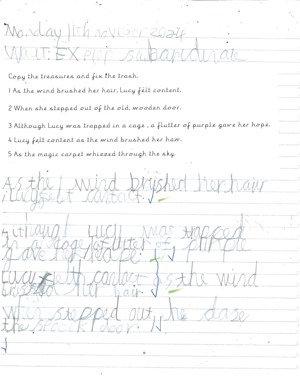 Monday 11th november 2024
WALT: EXPlor subordinate
Copy the treasures and fix the trash.
1 As the wind brushed her hair, Lucy felt content.
2 When she stepped out of the old, wooden door.
3 Although Lucy was trapped in a cage , a flutter of purple gave her hope.
4 Lucy felt content as the wind brushed her hair.
5 As the magic carpet whizzed through the sky.
As the wind brushed her hair
Lucy felt contact
Lucy was trapped
in a cage flutter of purple
gave her hope
Lucy felt contact as the wind
brushed her hair
When stepped out
the door